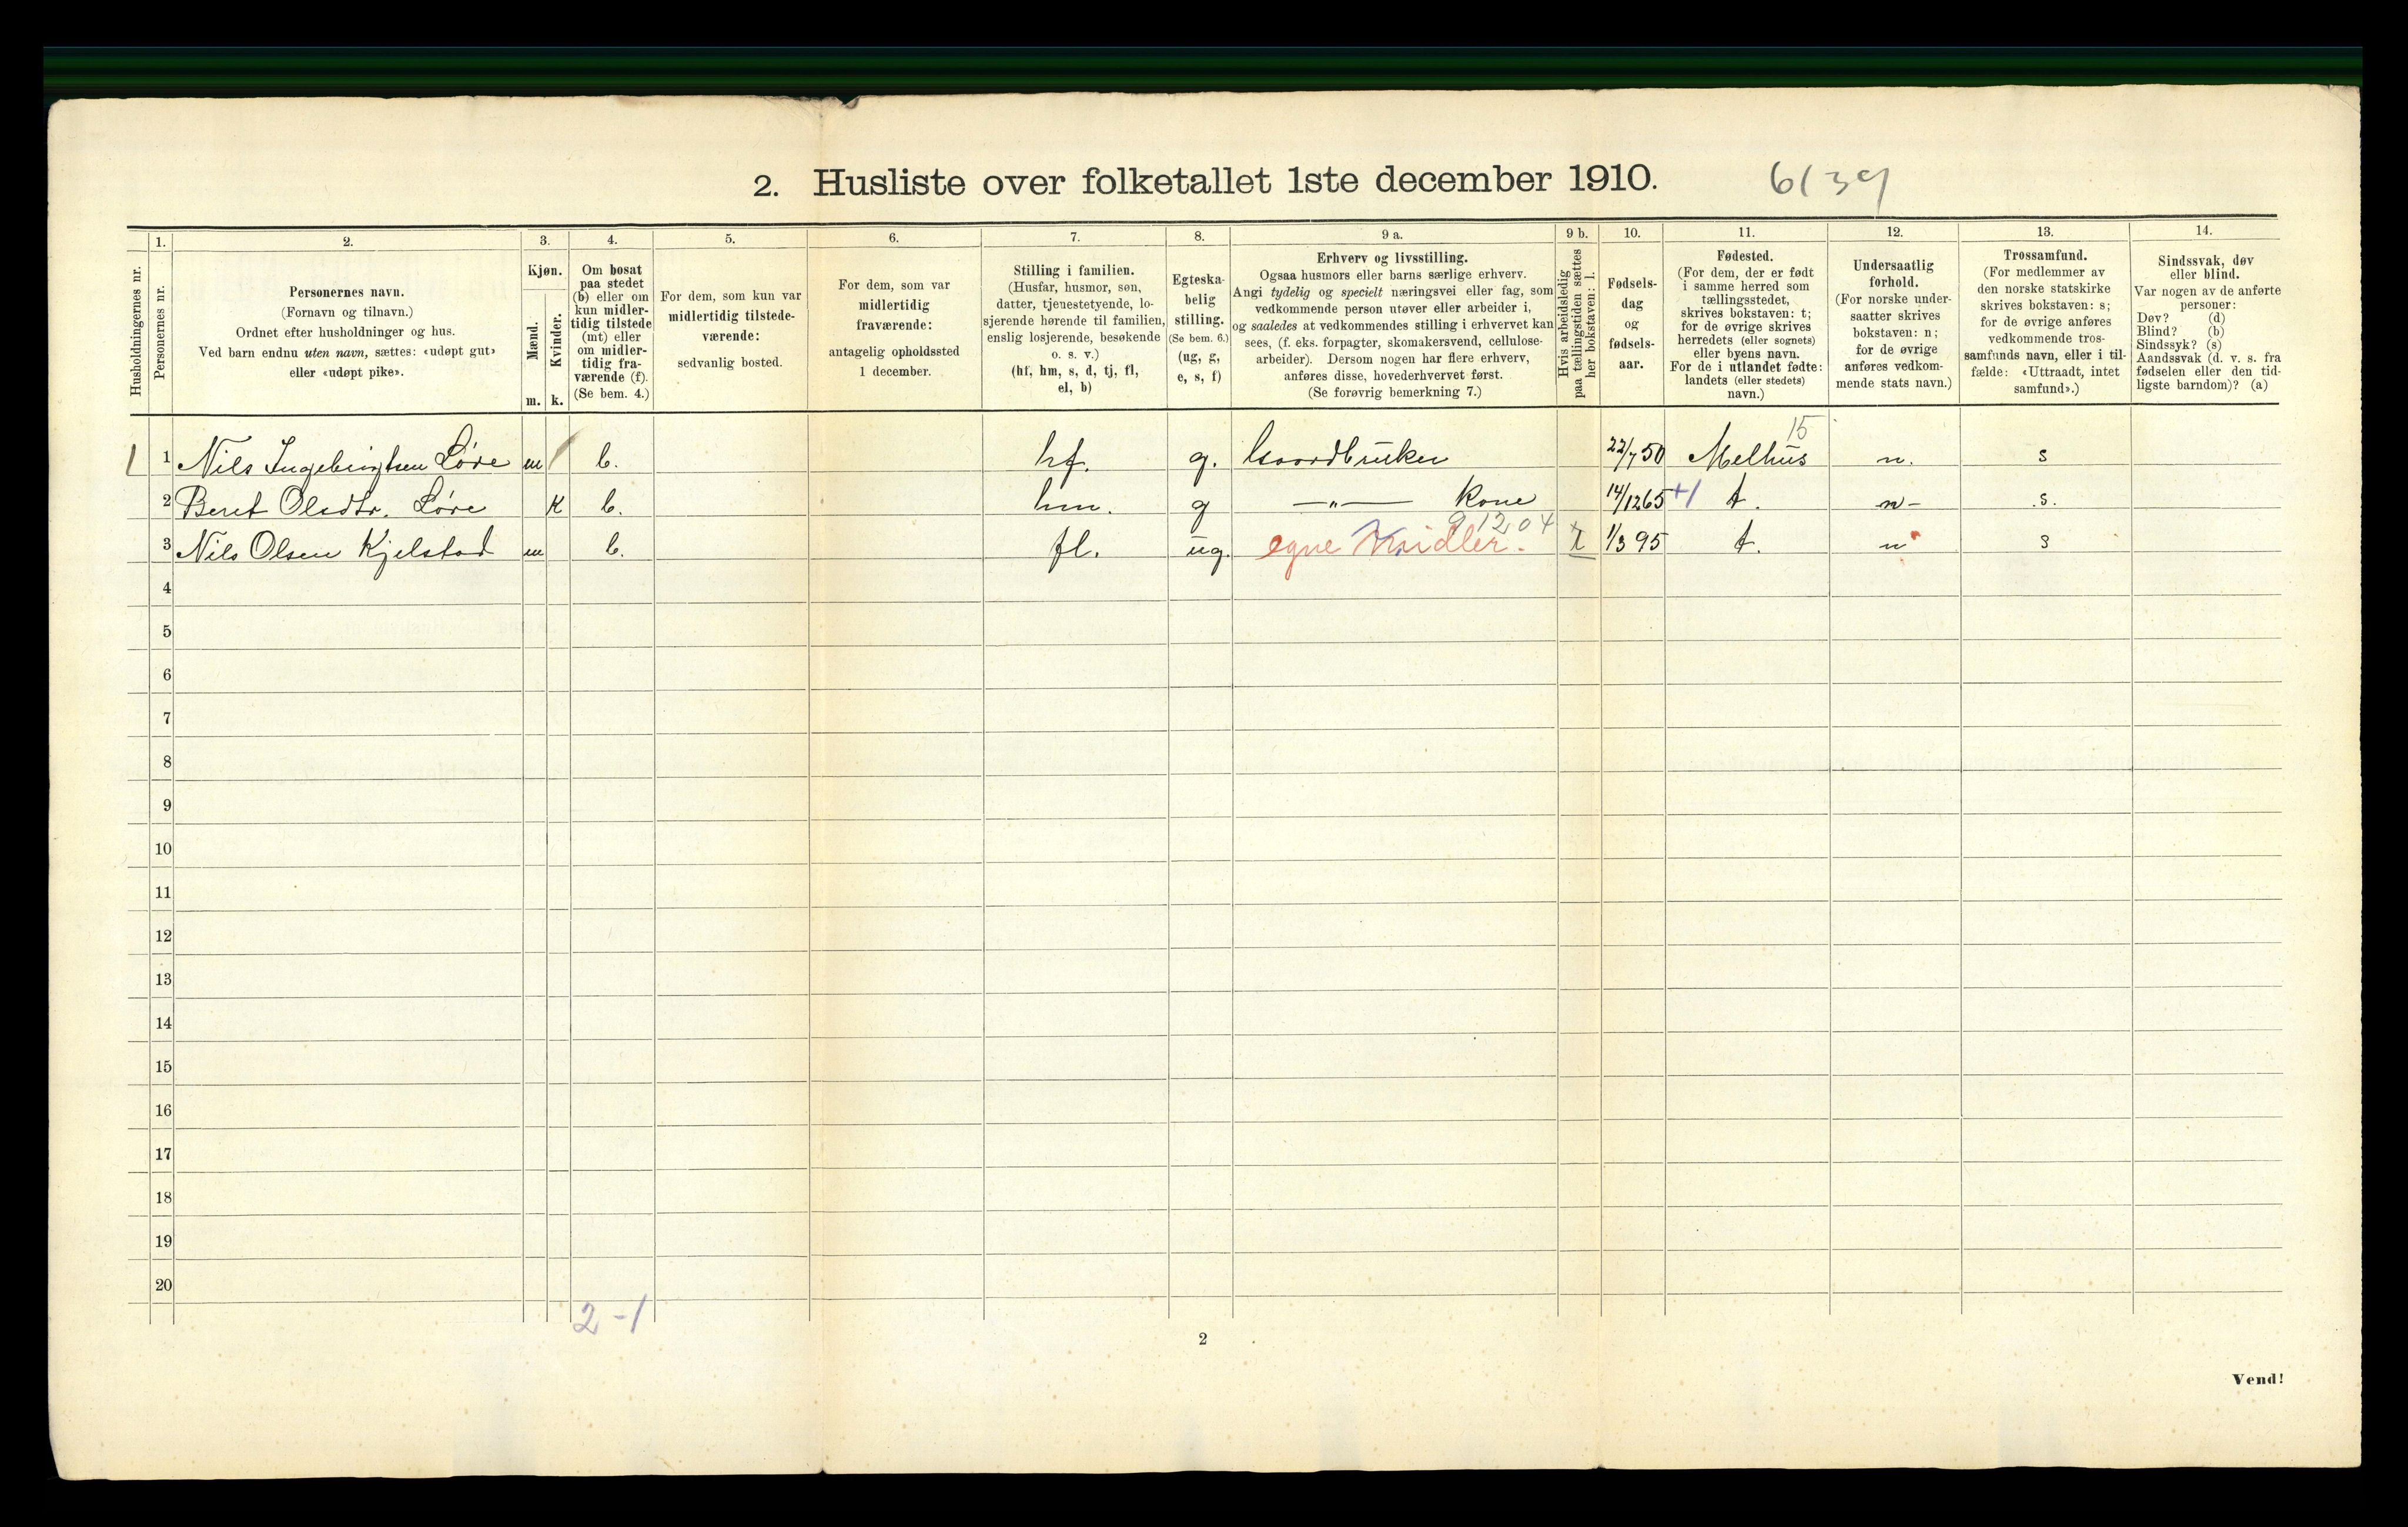 2. Husliste over folketallet 1ste december 1910.
6/39
Husholdningernes nr.
1.
Personernes nr.
2.
Personernes navn.
(Fornavn og tilnavn.)
Ordnet efter husholdninger og hus.
Ved barn endnu uten navn, sættes: «udøpt gut»
eller «udøpt pike».
3.
Kjøn.
Mænd.
m.
Kvinder.
k.
4.
Om bosat
paa stedet
(b) eller om
kun midler-
tidig tilstede
(mt) eller
om midler-
tidig fra-
værende (f).
(Se bem. 4.)
5.
For dem, som kun var
midlertidig tilstede-
værende:
sedvanlig bosted.
6.
For dem, som var
midlertidig
fraværende:
antagelig opholdssted
1 december.
7.
Stilling i familien.
(Husfar, husmor, søn,
datter, tjenestetyende, lo-
sjerende hørende til familien,
enslig losjerende, besøkende
o. s. v.)
(hf, hm, s, d, tj, fl,
el, b)
8.
Egteska-
belig
stilling.
(Se bem. 6.)
(ug, g,
e, s, f)
9 a.
Erhverv og livsstilling.
Ogsaa husmors eller barns særlige erhverv.
Angi tydelig og specielt næringsvei eller fag, som
vedkommende person utøver eller arbeider i,
og saaledes at vedkommendes stilling i erhvervet kan
sees, (f. eks. forpagter, skomakersvend, cellulose-
arbeider). Dersom nogen har flere erhverv,
anføres disse, hovederhvervet først.
(Se forøvrig bemerkning 7.)
9 b.
Hvis arbeidsledig
paa tællingstiden sættes
her bokstaven: l.
10.
Fødsels-
dag
og
fødsels-
aar.
11.
Fødested.
(For dem, der er født
i samme herred som
tællingsstedet,
skrives bokstaven: t;
for de øvrige skrives
herredets (eller sognets)
eller byens navn.
For de i utlandet fødte:
landets (eller stedets)
navn.)
12.
Undersaatlig
forhold.
(For norske under-
saatter skrives
bokstaven: n;
for de øvrige
anføres vedkom-
mende stats navn.)
13.
Trossamfund.
(For medlemmer av
den norske statskirke
skrives bokstaven: s;
for de øvrige anføres
vedkommende tros-
samfunds navn, eller i til-
fælde: «Uttraadt, intet
samfund».)
14.
Sindssvak, døv
eller blind.
Var nogen av de anførte
personer:
Døv? (d)
Blind? (b)
Sindssyk? (s)
Aandssvak (d. v. s. fra
fødselen eller den tid-
ligste barndom)? (a)
15
1 1 Nils Ingebrigtsen Løre m b. hf. g. Gaardbruker 22/7 50 Melhus n. s
2 Beret Olsdtr. Løre K b. hm. g —„— Kone 14/12 65 +1 t. n- .s.
9 12 04
3 Nils Olsen Kjelstad m b. fl. ug. egne Midler. 1/3 95 t. n s
4
5
6
7
8
9
10
11
12
13
14
15
16
17
18
19
20
2-1
2
Vend!